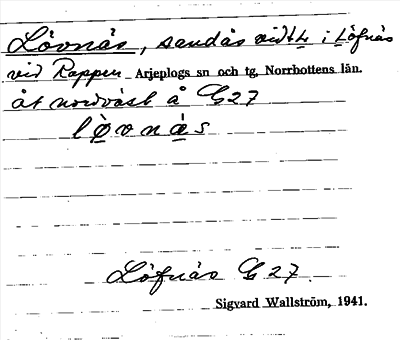 Lövnäs, sandås vid t. i Löfnäs
vid Rappen Arjeplogs sn och tg, Norrbottens län.
åt nordväst å G27
lövnäs
Löfnäs G 27.
Sigvard Wallström, 1941.